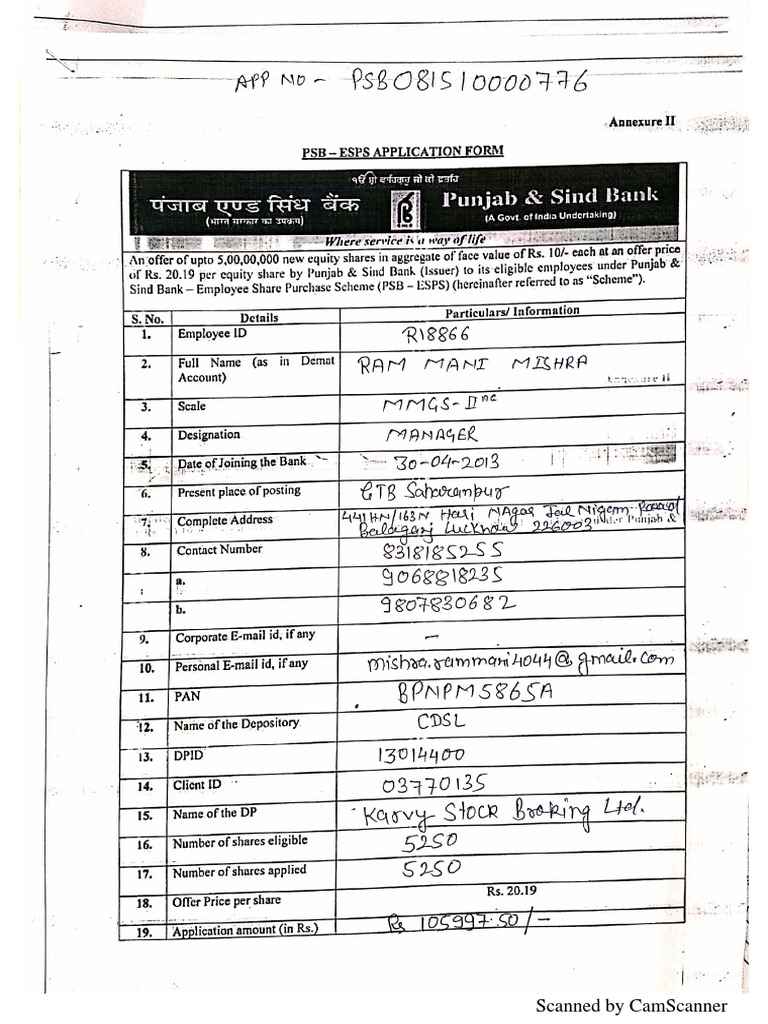 APP NO - PSB081510000776
Annexure II
PSB – ESPS APPLICATION FORM
ੴ ਸ੍ਰੀ ਵਾਹਿਗੁਰੂ ਜੀ ਕੀ ਫ਼ਤਹਿ
पंजाब एण्ड सिंध बैंक
(भारत सरकार का उपक्रम)
Punjab & Sind Bank
(A Govt. of India Undertaking)
Where service is a way of life
An offer of upto 5,00,00,000 new equity shares in aggregate of face value of Rs. 10/- each at an offer price
of Rs. 20.19 per equity share by Punjab & Sind Bank (Issuer) to its eligible employees under Punjab &
Sind Bank – Employee Share Purchase Scheme (PSB – ESPS) (hereinafter referred to as "Scheme").
S. No. Details Particulars/ Information
1. Employee ID R18866
2. Full Name (as in Demat Account) RAM MANI MISHRA
Annexure II
3. Scale MMGS-II
4. Designation MANAGER
5. Date of Joining the Bank 30-04-2013
6. Present place of posting GTB Saharanpur
7. Complete Address 441HN/163N Hari NAgar Jal Nigam Road
Balaganj Lucknow 226003 under Punjab &
8. Contact Number 8318185255
a. 9068818235
b. 9807830682
9. Corporate E-mail id, if any –
10. Personal E-mail id, if any mishra.rammani4044@gmail.com
11. PAN BPNPM5865A
12. Name of the Depository CDSL
13. DPID 13014400
14. Client ID 03770135
15. Name of the DP Karvy Stock Broking Ltd.
16. Number of shares eligible 5250
17. Number of shares applied 5250
18. Offer Price per share Rs. 20.19
19. Application amount (in Rs.) Rs 105997.50/-
Scanned by CamScanner